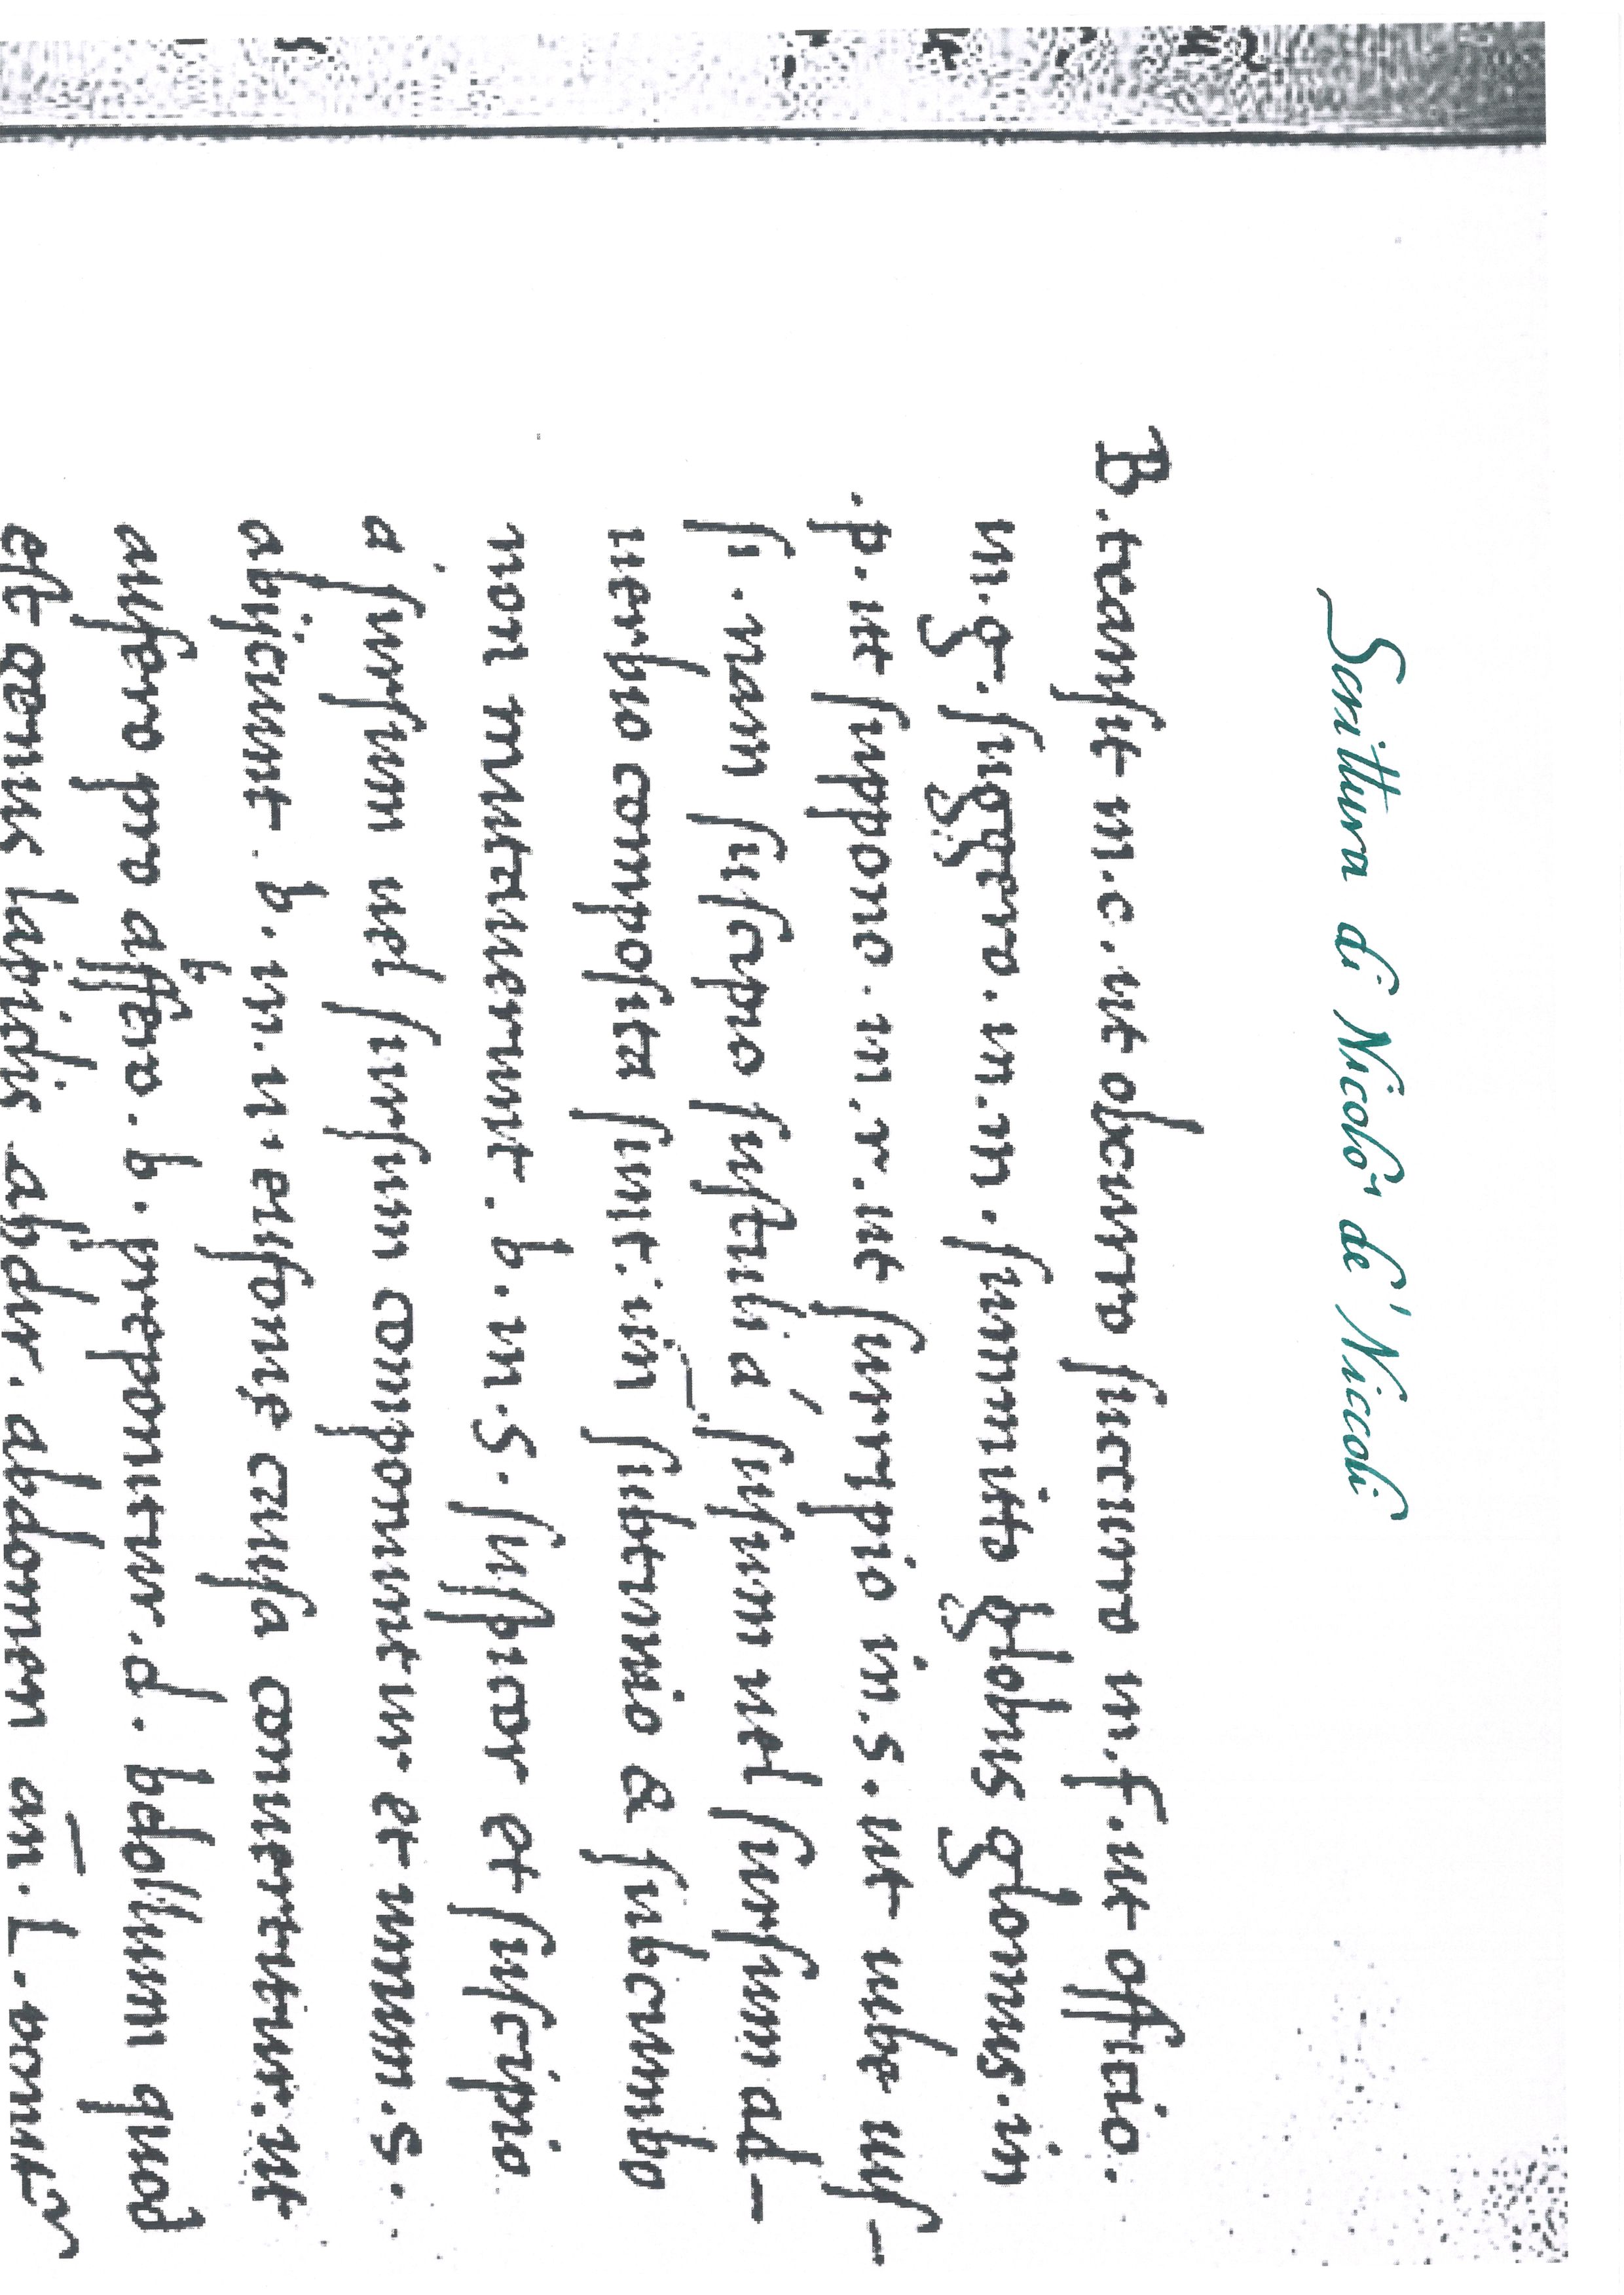 Scrittura di Nicolò de' Niccoli
B. transit in. c. ut obcurro succurro in. f. ut officio.
in. g. suggero. in. m. summitto globus glomus. in
.p. ut suppono. in. r. ut surripio in. s. ut iube iuſ-
ſi. nam suscipio sustuli a' susum uel sursum ad-
uerbio composita sunt. im̄ subtraío & subcumbo
non mutauerunt. b. in. s. suspicor et suscipio
a' sursum uel sursum componuntur et unum. s..
abijciunt. b. in. u. eufonię causa conuertitur. ut
aufero pro affero. b. preponitur. d. bdellium quod
est genus lapidis abdir. abdomen añ. l. ponitur